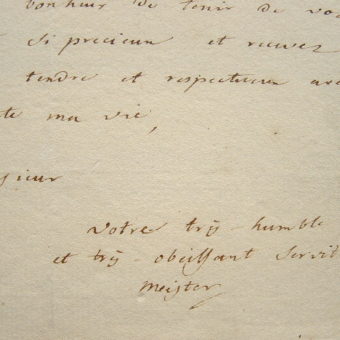 bonheur de tenir de vo
si precieux et recevez
tendre et respectueux
te ma vie,
sieur
votre trҫs - humble
et trҫs - obeissant Servit
Meister